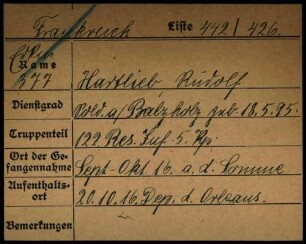 Frankreich Liste 442/426.
Name
377 Hartlieb, Rudolf
Dienstgrad Sold. a/ Balzholz geb. 18.5.95.
Truppenteil 122. Res. Inf. 5. Kp.
Ort der Ge-
fangennahme Sept-Okt 16. a. d. Somme
Aufenthalts-
ort 20.10.16. Dep. d. Orleans.
Bemerkungen